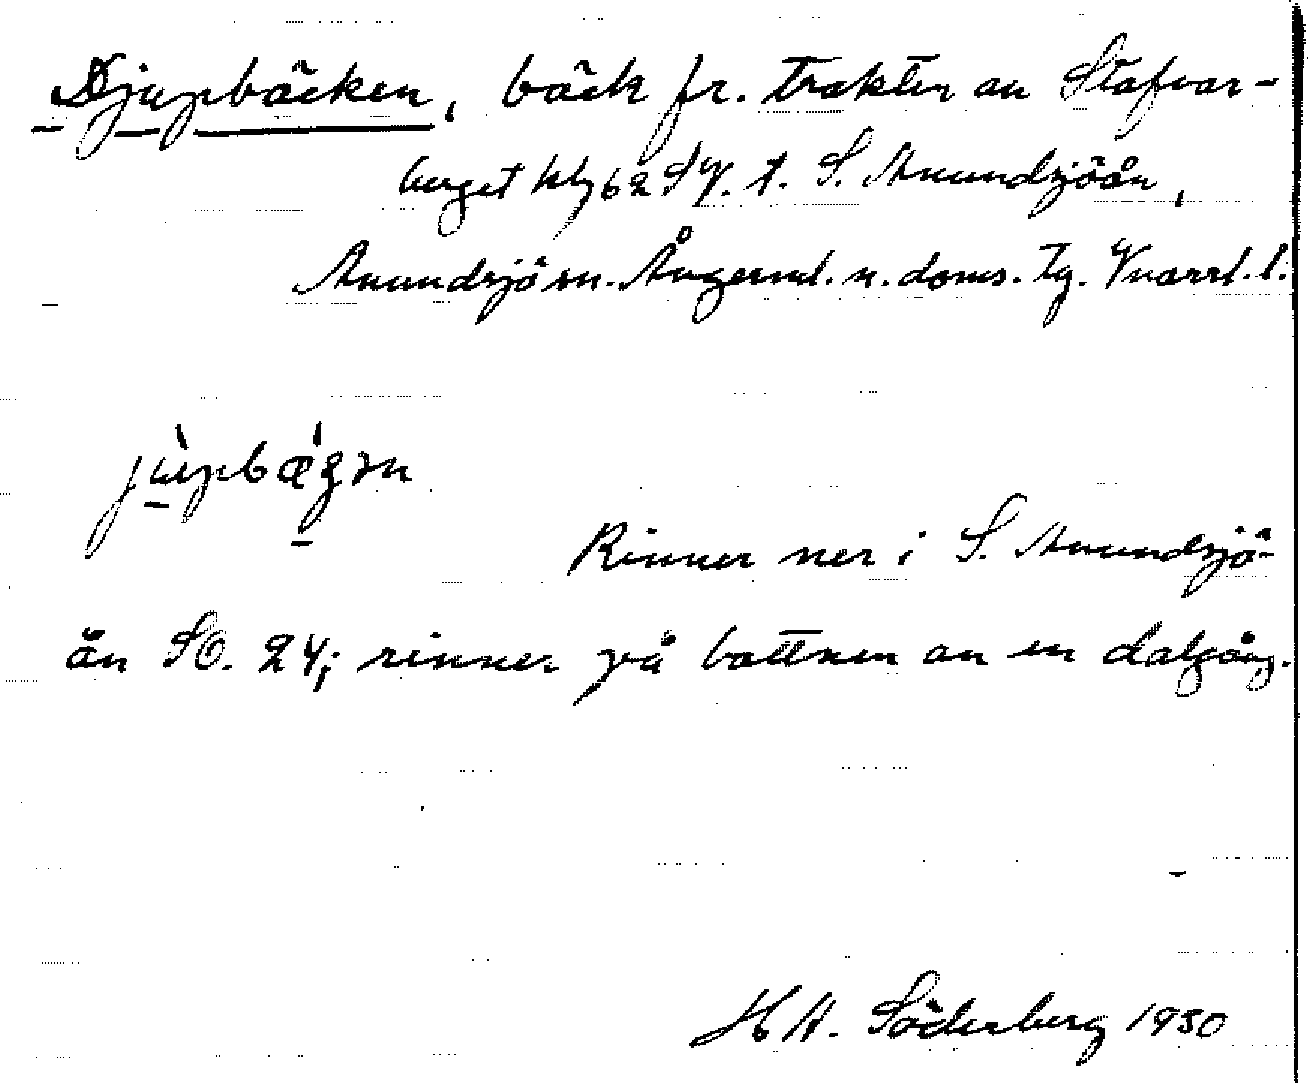 Djupbäcken, bäck fr. trakten av Stafvar-
berget 62 t. S. Anundsjöån,
Anundsjö sn. Ångerml. n. doms. tg. Vnorrl. l.
Rinner ner i S. Anundsjö-
ån SO. 24; rinner på bottnen av en dalgång.
H A. Söderberg 1930